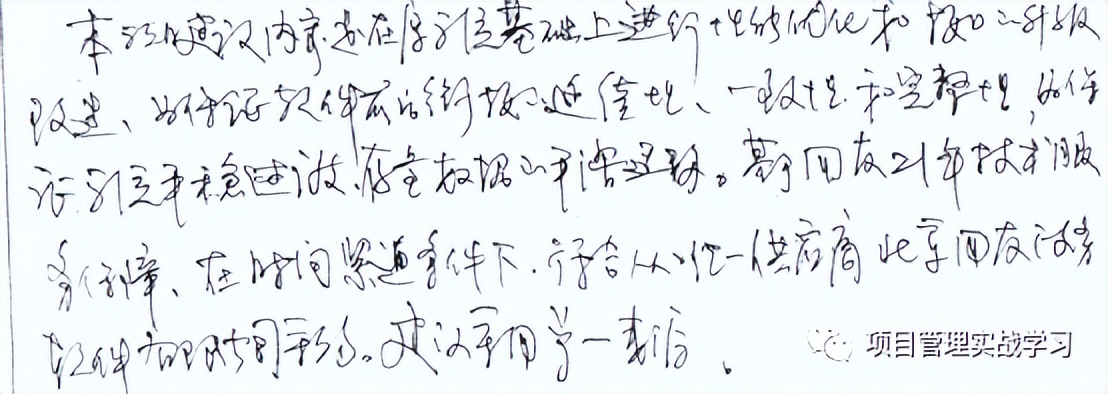 本项目建设内容是在原系统基础上进行性能优化和接口的升级
改造、为保证软件应的衔接连续性、一致性和完整性,为保
证系统平稳过渡、存量数据的平滑迁移。基于用友21年技术服
务保障、在时间紧迫条件下、符合从唯一供应商北京用友政务
软件有限公司采购。建议采用单一来源、
项目管理实战学习